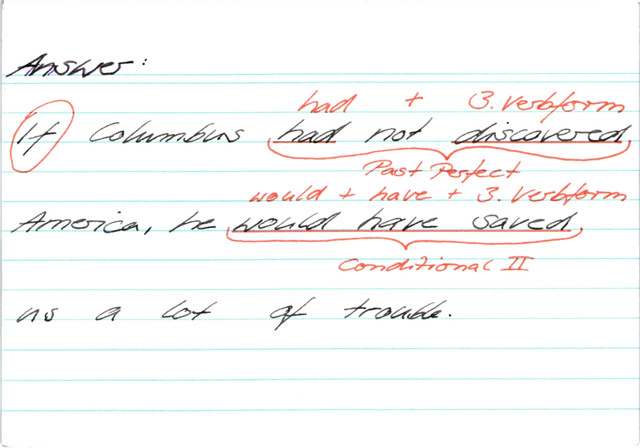 Answer:
had + 3. Verbform
If Columbus had not discovered
Past Perfect
would + have + 3. Verbform
America, he would have saved
Conditional II
us a lot of trouble.